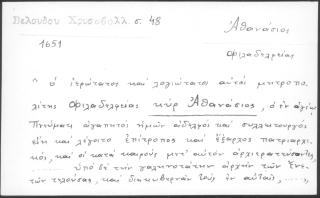 Βελούδου Χρυσόβουλλ. σ. 48
Ἀθανάσιος
1651
Φιλαδελφείας
"ὁ ἱερώτατος καὶ λογιώτατος αὐτοῦ μητροπο-
λίτης Φιλαδελφείας κὺρ Ἀθανάσιος, ἐν ἁγίῳ
Πνεύματι ἀγαπητὸς ἡμῶν ἀδελφὸς καὶ συλλειτουργὸς
εἴη καὶ λέγοιτο ἐπίτροπος καὶ ἔξαρχος πατριαρχι-
κός, καὶ οἱ κατὰ καιροὺς μετ' αὐτὸν ἀρχιερατεύσαντες
..... ὑπὸ δὲ τὴν γαληνοτάτην ἀρχὴν τῶν Ἑνε-
τῶν τελούσας, καὶ διακυβερνᾶν τοὺς ἐν αὐταῖς, .....,